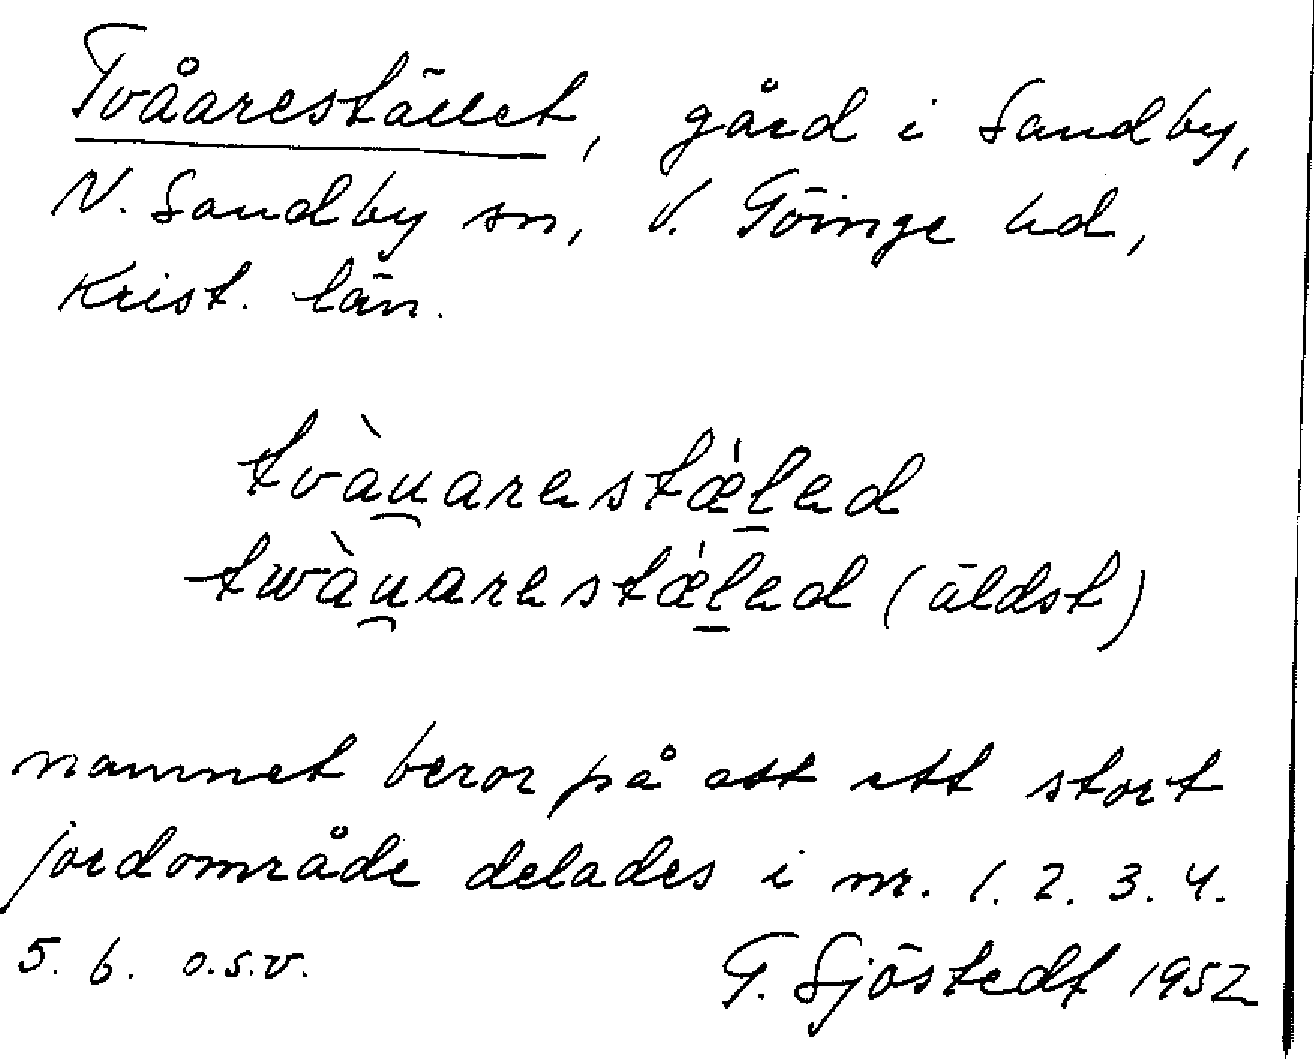 Tvåarestället, gård i Sandby,
N. Sandby sn, V. Göinge hd,
Krist. län.
tvàu̯arəstǽl̠əd
twàu̯arəstǽl̠əd (äldst)
namnet beror på att ett stort
jordområde delades i nr. 1. 2. 3. 4.
5. 6. o.s.v.
G. Sjöstedt 1952